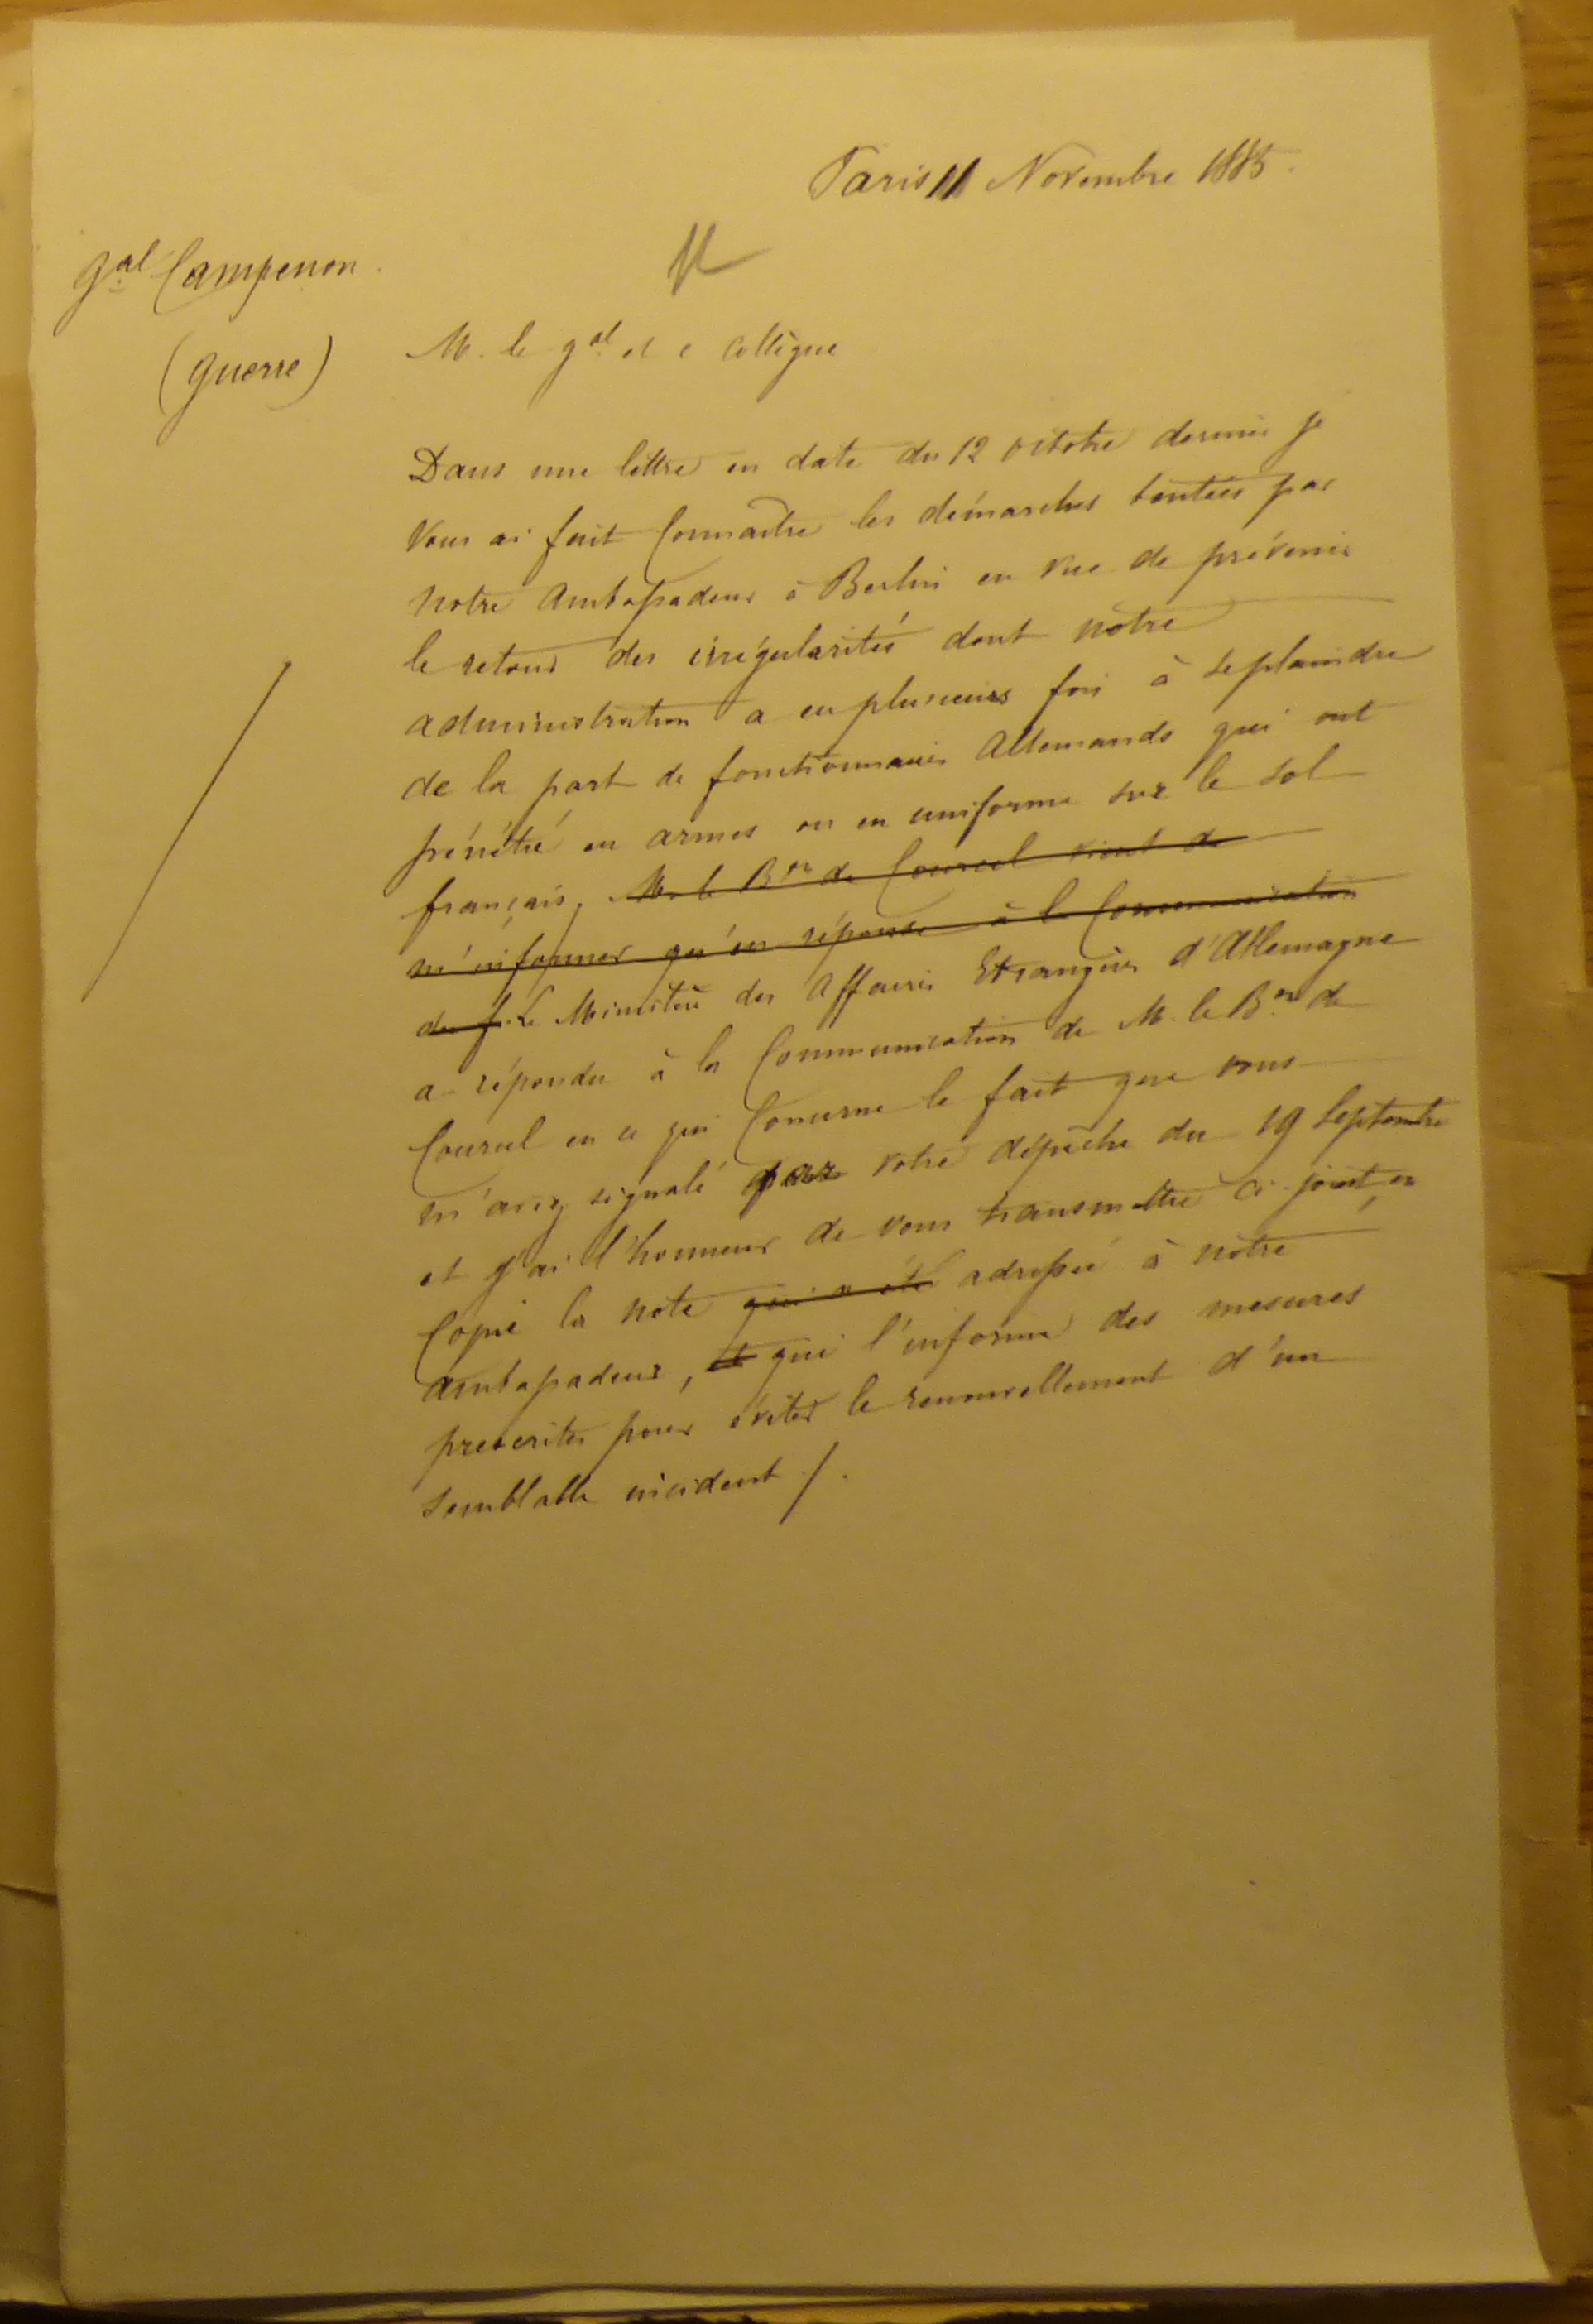 Paris 11 Novembre 1885.
Gal Campenon.
(Guerre)
M. le gal et c collègue
Dans une lettre en date du 12 octobre dernier je
vous ai fait connaître les démarches tentées par
notre Ambassadeur à Berlin en vue de prévenir
le retour des irrégularités dont notre
administration a eu plusieurs fois à se plaindre
de la part de fonctionnaires Allemands qui ont
pénétré en armes ou en uniforme sur le sol
français. M. le Bon de Courcel vient de
m'informer qu'en réponse à la Communication
de Le Ministère des Affaires Etrangères d'Allemagne
a répondu à la Communication de M. le Bon de
Courcel en ce qui concerne le fait que vous
m'avez signalé par votre dépêche du 19 Septembre
et j'ai l'honneur de vous transmettre ci-joint, en
copie la note qui a été adressée à notre
Ambassadeur, et qui l'informe des mesures
prescrites pour éviter le renouvellement d'un
semblable incident /.